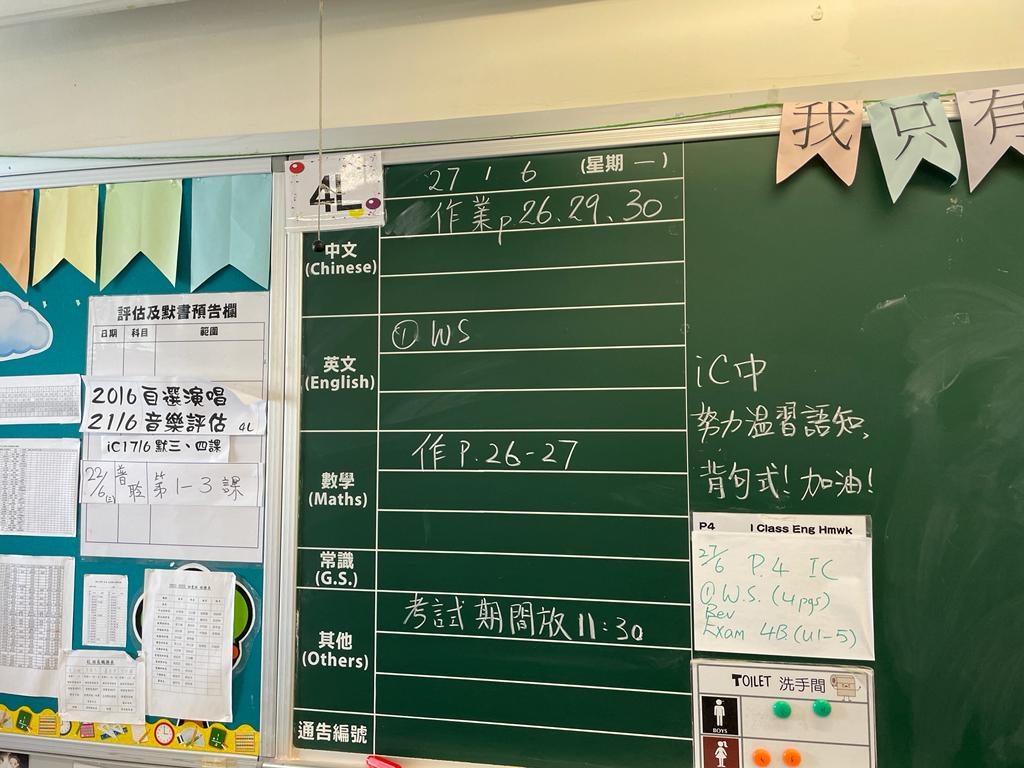 我只有
4L
27 / 6 (星期 一 )
作業p.26、29、30
中文
(Chinese)
① WS
英文
(English)
作 P.26-27
數學
(Maths)
常識
(G.S.)
考試期間放11:30
其他
(Others)
通告編號
評估及默書預告欄
日期 科目 範圍
20/6 自選演唱
21/6 音樂評估 4L
iC17/6 默三、四課
22/6(三) 普聆 第1-3課
iC中
努力溫習語知,
背句式! 加油!
P4 I Class Eng Hmwk
27/6 P.4 IC
① W.S. (4pgs)
Rev
Exam 4B (U1-5)
TOILET 洗手間
BOYS